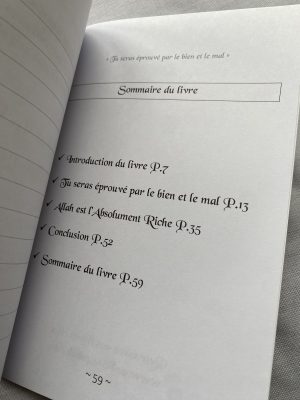 « Tu seras éprouvé par le bien et le mal »
Sommaire du livre
✓ Introduction du livre P.7
✓ Tu seras éprouvé par le bien et le mal P.13
✓ Allah est l'Absolument Riche P.35
✓ Conclusion P.52
✓ Sommaire du livre P.59
~ 59 ~